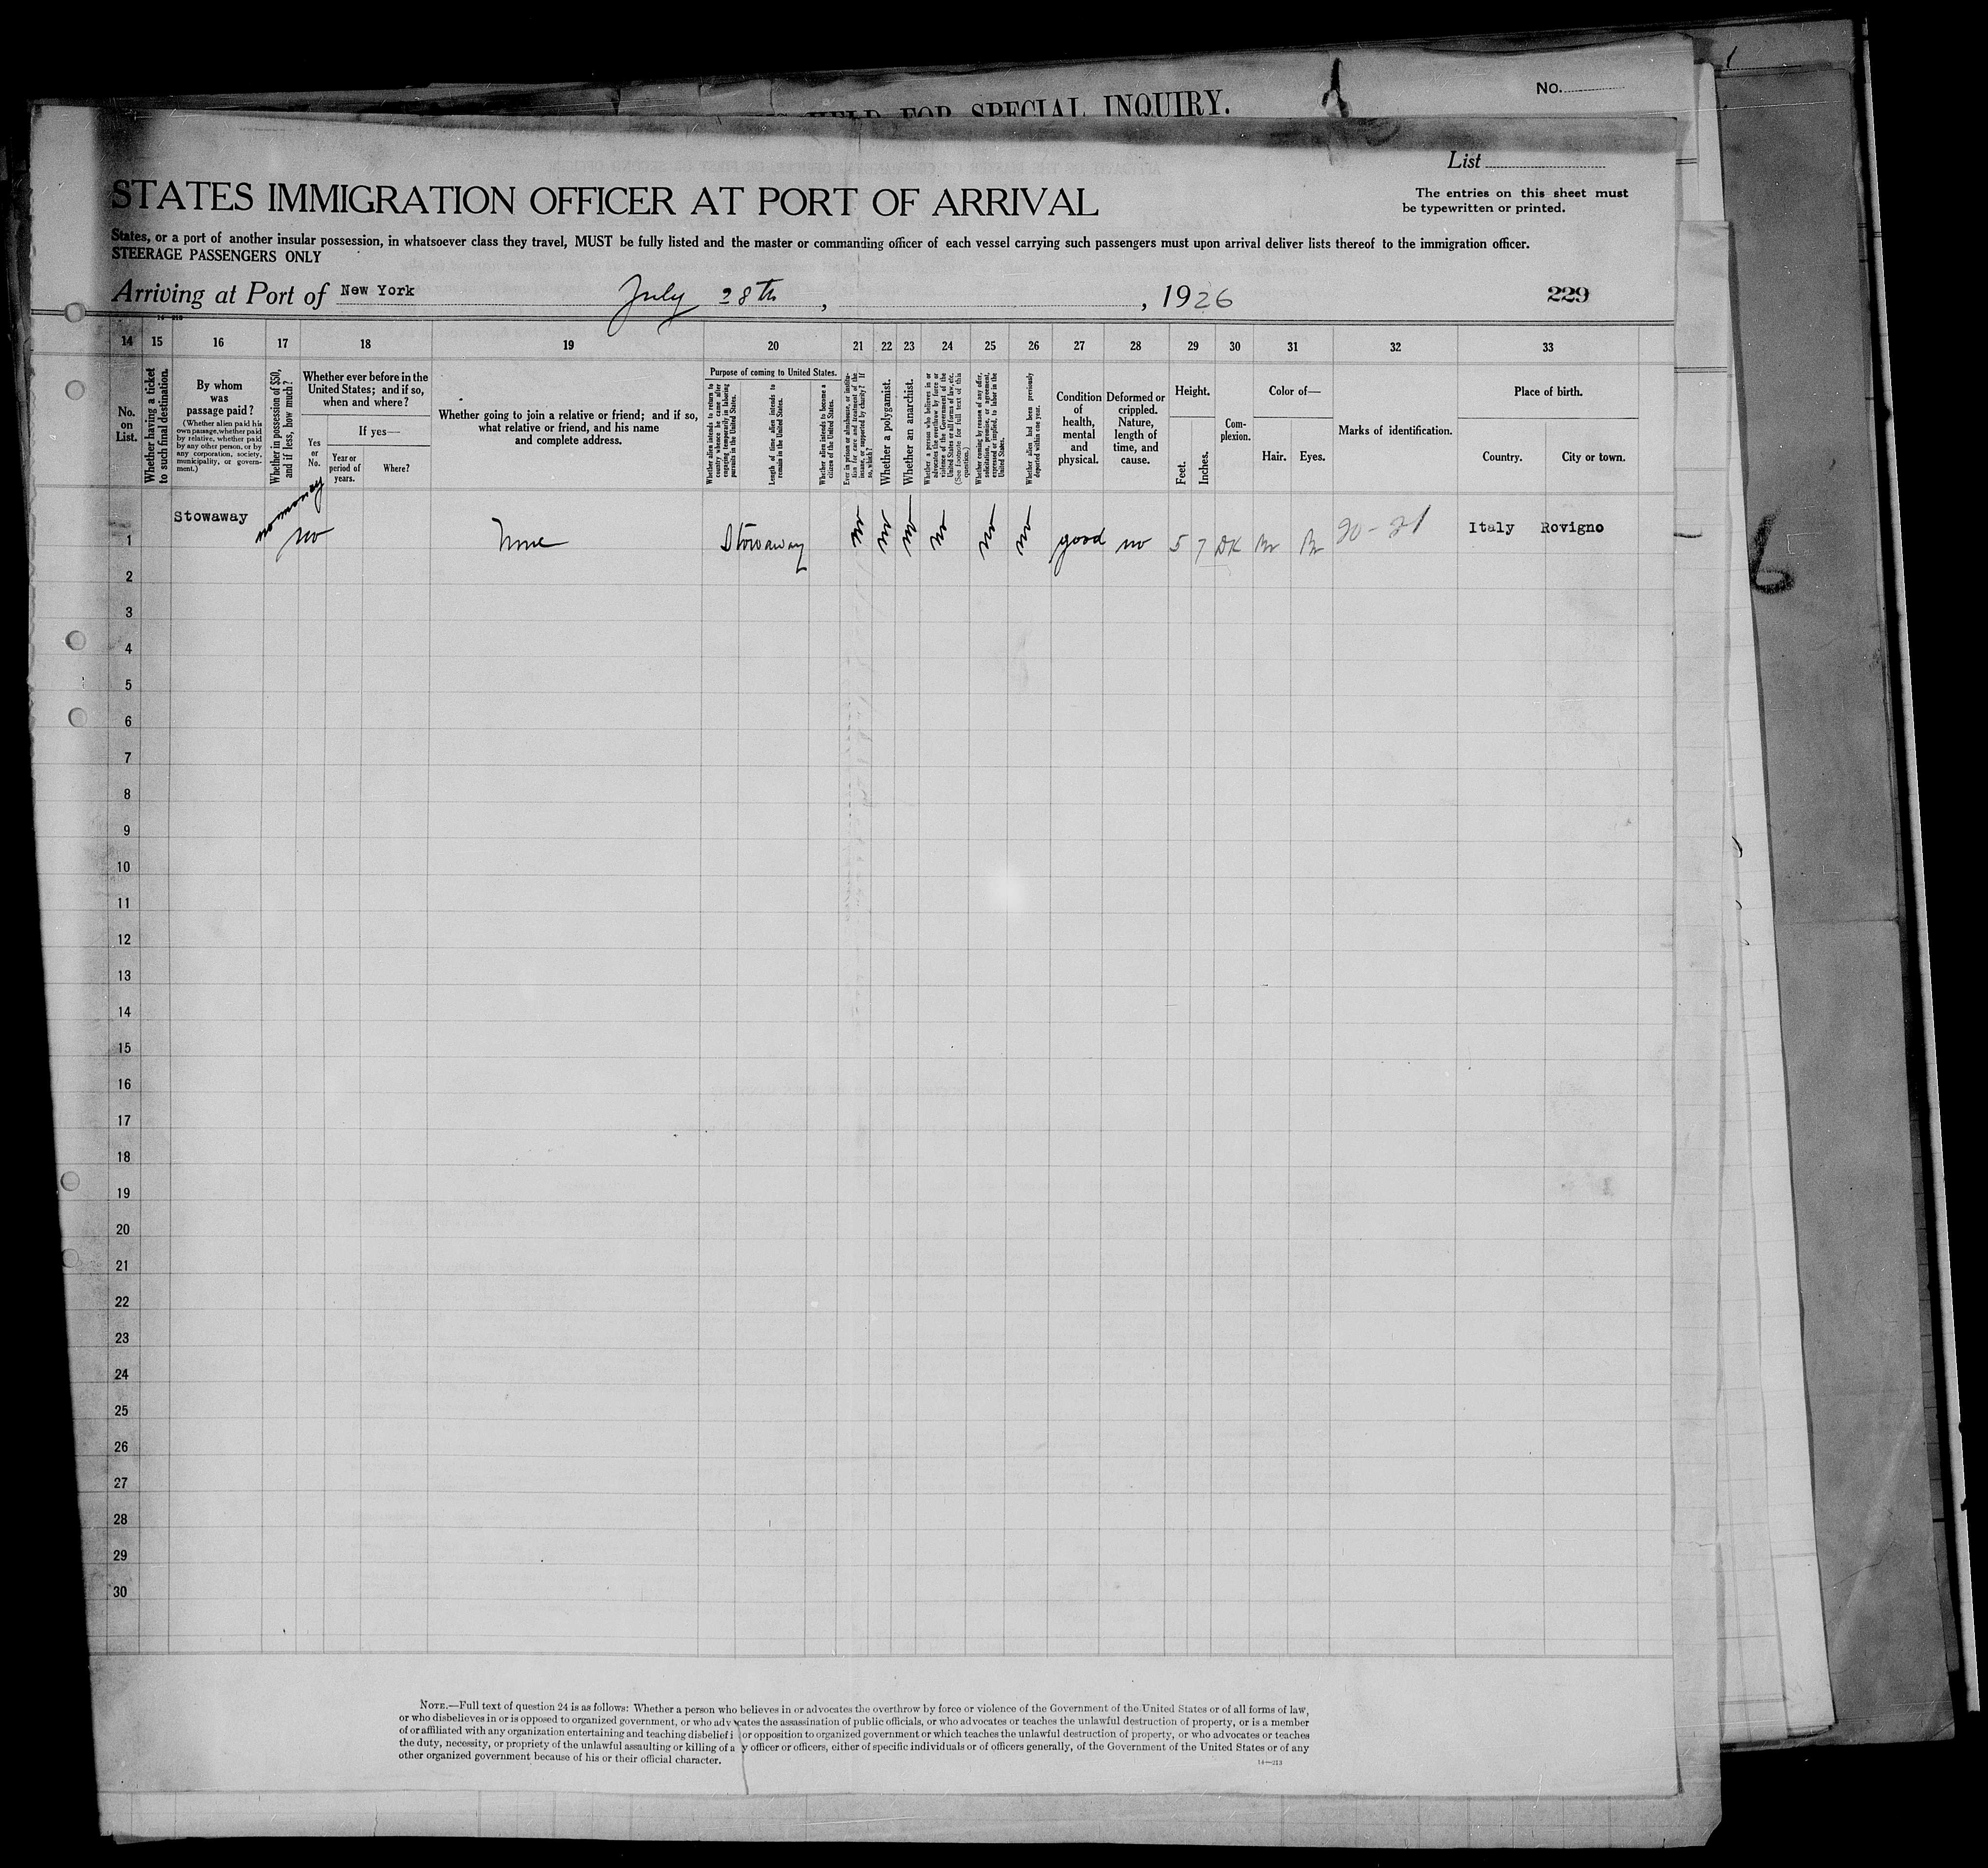 HELD FOR SPECIAL INQUIRY.
No.
List
STATES IMMIGRATION OFFICER AT PORT OF ARRIVAL
The entries on this sheet must
be typewritten or printed.
States, or a port of another insular possession, in whatsoever class they travel, MUST be fully listed and the master or commanding officer of each vessel carrying such passengers must upon arrival deliver lists thereof to the immigration officer.
STEERAGE PASSENGERS ONLY
Arriving at Port of New York July 28th, , 1926 229
14—213
14 15 16 17 18 19 20 21 22 23 24 25 26 27 28 29 30 31 32 33
No. on List.
Whether having a ticket to such final destination.
By whom was passage paid?
(Whether alien paid his own passage, whether paid by relative, whether paid by any other person, or by any corporation, society, municipality, or government.)
Whether in possession of $50, and if less, how much?
Whether ever before in the United States; and if so, when and where?
Yes or No.
If yes—
Year or period of years.
Where?
Whether going to join a relative or friend; and if so, what relative or friend, and his name and complete address.
Purpose of coming to United States.
Whether alien intends to return to country whence he came after engaging temporarily in laboring pursuits in the United States.
Length of time alien intends to remain in the United States.
Whether alien intends to become a citizen of the United States.
Ever in prison or almshouse, or institution for care and treatment of the insane, or supported by charity? If so, which?
Whether a polygamist.
Whether an anarchist.
Whether a person who believes in or advocates the overthrow by force or violence of the Government of the United States or all forms of law, etc. (See footnote for full text of this question.)
Whether coming by reason of any offer, solicitation, promise, or agreement, expressed or implied, to labor in the United States.
Whether alien had been previously deported within one year.
Condition of health, mental and physical.
Deformed or crippled. Nature, length of time, and cause.
Height.
Feet.
Inches.
Complexion.
Color of—
Hair. Eyes.
Marks of identification.
Place of birth.
Country. City or town.
1 Stowaway no money no None Stowaway no no no no no no good no 5 7 DK Br Br 20-21 Italy Rovigno
2
3
4
5
6
7
8
9
10
11
12
13
14
15
16
17
18
19
20
21
22
23
24
25
26
27
28
29
30
NOTE.—Full text of question 24 is as follows: Whether a person who believes in or advocates the overthrow by force or violence of the Government of the United States or of all forms of law,
or who disbelieves in or is opposed to organized government, or who advocates the assassination of public officials, or who advocates or teaches the unlawful destruction of property, or is a member
of or affiliated with any organization entertaining and teaching disbelief i or opposition to organized government or which teaches the unlawful destruction of property, or who advocates or teaches
the duty, necessity, or propriety of the unlawful assaulting or killing of a y officer or officers, either of specific individuals or of officers generally, of the Government of the United States or of any
other organized government because of his or their official character.
14—213